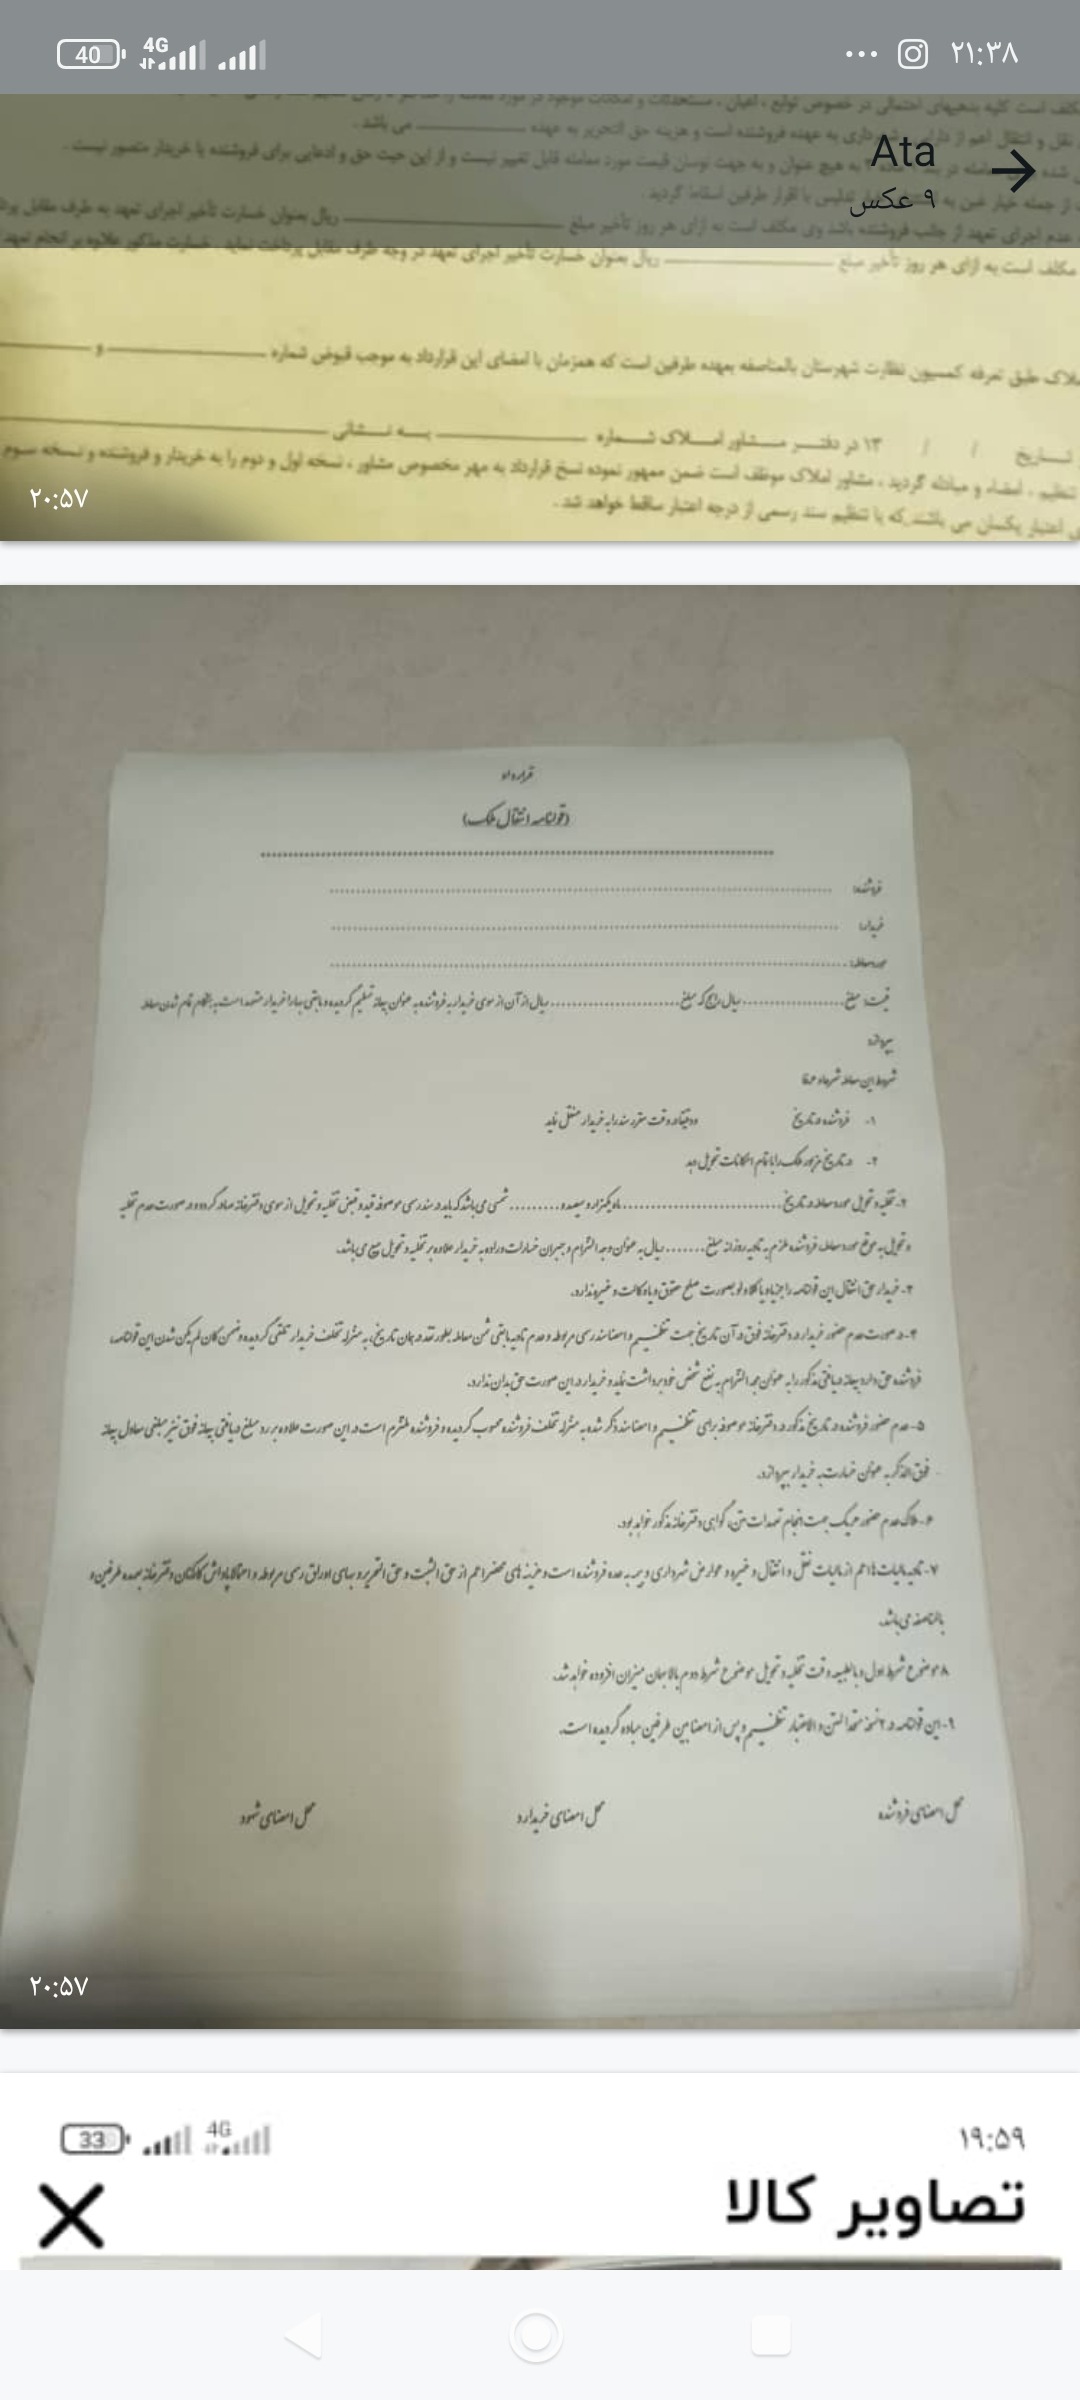 40 4G ۲۱:۳۸
Ata
۹ عکس
نقل و انتقال اعم از دارایی و شهرداری به عهده فروشنده است و هزینه حق التحریر به عهده می باشد.
به هیچ عنوان و به جهت نوسان قیمت مورد معامله قابل تغییر نیست و از این حیث حق و ادعایی برای فروشنده یا خریدار متصور نیست.
عدم اجرای تعهد از جانب فروشنده باشد وی مکلف است به ازای هر روز تأخیر مبلغ ریال بعنوان خسارت تأخیر اجرای تعهد به طرف مقابل
مکلف است به ازای هر روز تأخیر مبلغ ریال بعنوان خسارت تأخیر اجرای تعهد در وجه طرف مقابل پرداخت نماید. خسارت مذکور علاوه بر انجام تعهد
املاک طبق تعرفه کمسیون نظارت شهرستان بالمناصفه بعهده طرفین است که همزمان با امضای این قرارداد به موجب قبوض شماره و
تاریخ / / ۱۳ در دفتر مشاور املاک شماره به نشانی
تنظیم ، امضاء و مبادله گردید ، مشاور املاک موظف است ضمن ممهور نموده نسخ قرارداد به مهر مخصوص مشاور ، نسخه اول و دوم را به خریدار و فروشنده و نسخه سوم
اعتبار یکسان می باشند که با تنظیم سند رسمی از درجه اعتبار ساقط خواهد شد.
۲۰:۵۷
قرارداد
(قولنامه انتقال ملک)
فروشنده:
خریدار:
مورد معامله:
قیمت: مبلغ ریال رایج که مبلغ ریال از آن از سوی خریدار به فروشنده به عنوان بیعانه تسلیم گردیده و مابقی بها را خریدار متعهد است به هنگام تمام شدن معامله
بپردازد
شروط این معامله شرعا و عرفا
۱- فروشنده در تاریخ و دقیقا در وقت مقرر سند را به خریدار منتقل نماید
۲- در تاریخ مزبور ملک را با تمام امکانات تحویل دهد
۲- تخلیه و تحویل مورد معامله در تاریخ ماه یکهزار و سیصد و شمسی می باشد که باید در سند رسمی موصوف قید و قبض تخلیه و تحویل از سوی دفترخانه صادر گردد و در صورت عدم تخلیه
و تحویل به موقع مورد معامله فروشنده ملزم به تادیه روزانه مبلغ ریال به عنوان وجه التزام و جبران خسارات وارده به خریدار علاوه بر تخلیه و تحویل مبیع می باشد.
۳- خریدار حق انتقال این قولنامه را جزئیاً و یا کلا ولو بصورت صلح حقوق و یا وکالت و غیره ندارد.
۴- در صورت عدم حضور خریدار در دفترخانه فوق در آن تاریخ جهت تنظیم و امضا سند رسمی مربوطه و عدم تادیه مابقی ثمن معامله بطور نقد در همان تاریخ، به منزله تخلف خریدار تلقی گردیده و ضمن کان لم یکن شدن این قولنامه،
فروشنده حق دارد بیعانه دریافتی مذکور را به عنوان وجه التزام به نفع شخص خود برداشت نماید و خریدار در این صورت حق بدان ندارد.
۵- عدم حضور فروشنده در تاریخ مذکور در دفترخانه موصوف برای تنظیم و امضا سند ذکر شده به منزله تخلف فروشنده محسوب گردیده و فروشنده ملتزم است در این صورت علاوه بر رد مبلغ دریافتی بیعانه فوق نیز مبلغی معادل بیعانه
فوق الذکر به عنوان خسارت به خریدار بپردازد.
۶- ملاک عدم حضور هر یک جهت انجام تعهدات متن، گواهی دفترخانه مذکور خواهد بود.
۷- تادیه مالیات ها اعم از مالیات نقل و انتقال و غیره و عوارض شهرداری و بیمه به عهده فروشنده است و هزینه های محضر اعم از حق الثبت و حق التحریر و بهای اوراق رسمی مربوطه و احتمالا پاداش کارکنان دفترخانه بعهده طرفین و
بالمناصفه می باشد.
۸ موضوع شرط اول و بالطبیعه وقت تخلیه و تحویل موضوع شرط دوم بالا بهمان میزان افزوده خواهد شد.
۹- این قولنامه در ۲ نسخه متحد المتن و الاعتبار تنظیم و پس از امضا بین طرفین مبادله گردیده است.
محل امضای فروشنده محل امضای خریدارد محل امضای شهود
۲۰:۵۷
33 4G ۱۹:۵۹
تصاویر کالا